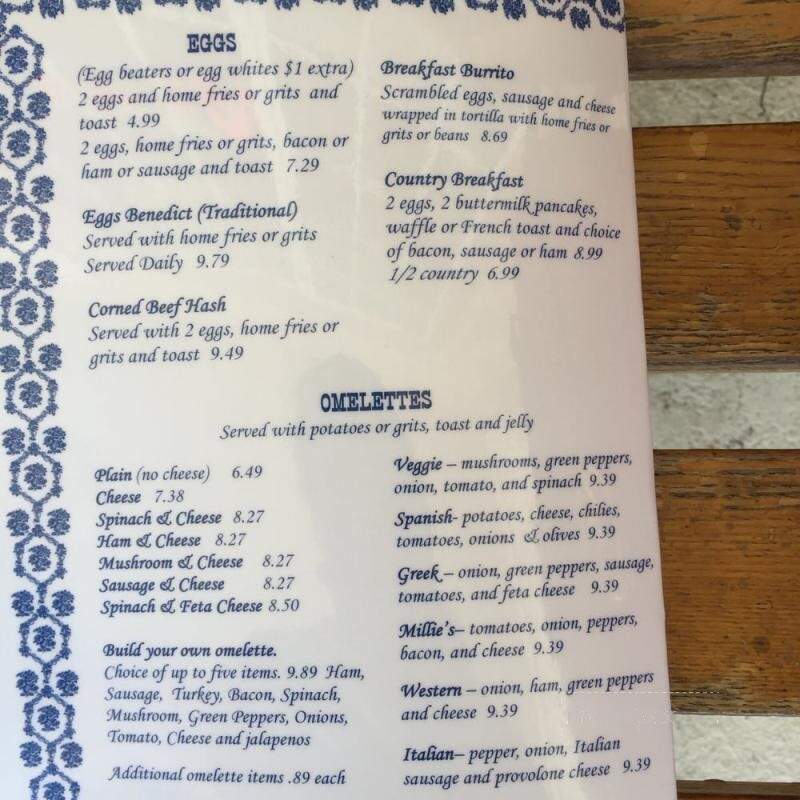 EGGS
(Egg beaters or egg whites $1 extra)
2 eggs and home fries or grits and
toast 4.99
2 eggs, home fries or grits, bacon or
ham or sausage and toast 7.29
Eggs Benedict (Traditional)
Served with home fries or grits
Served Daily 9.79
Corned Beef Hash
Served with 2 eggs, home fries or
grits and toast 9.49
Breakfast Burrito
Scrambled eggs, sausage and cheese
wrapped in tortilla with home fries or
grits or beans 8.69
Country Breakfast
2 eggs, 2 buttermilk pancakes,
waffle or French toast and choice
of bacon, sausage or ham 8.99
1/2 country 6.99
OMELETTES
Served with potatoes or grits, toast and jelly
Plain (no cheese) 6.49
Cheese 7.38
Spinach & Cheese 8.27
Ham & Cheese 8.27
Mushroom & Cheese 8.27
Sausage & Cheese 8.27
Spinach & Feta Cheese 8.50
Build your own omelette.
Choice of up to five items. 9.89 Ham,
Sausage, Turkey, Bacon, Spinach,
Mushroom, Green Peppers, Onions,
Tomato, Cheese and jalapenos
Additional omelette items .89 each
Veggie – mushrooms, green peppers,
onion, tomato, and spinach 9.39
Spanish- potatoes, cheese, chilies,
tomatoes, onions & olives 9.39
Greek – onion, green peppers, sausage,
tomatoes, and feta cheese 9.39
Millie's– tomatoes, onion, peppers,
bacon, and cheese 9.39
Western – onion, ham, green peppers
and cheese 9.39
Italian– pepper, onion, Italian
sausage and provolone cheese 9.39